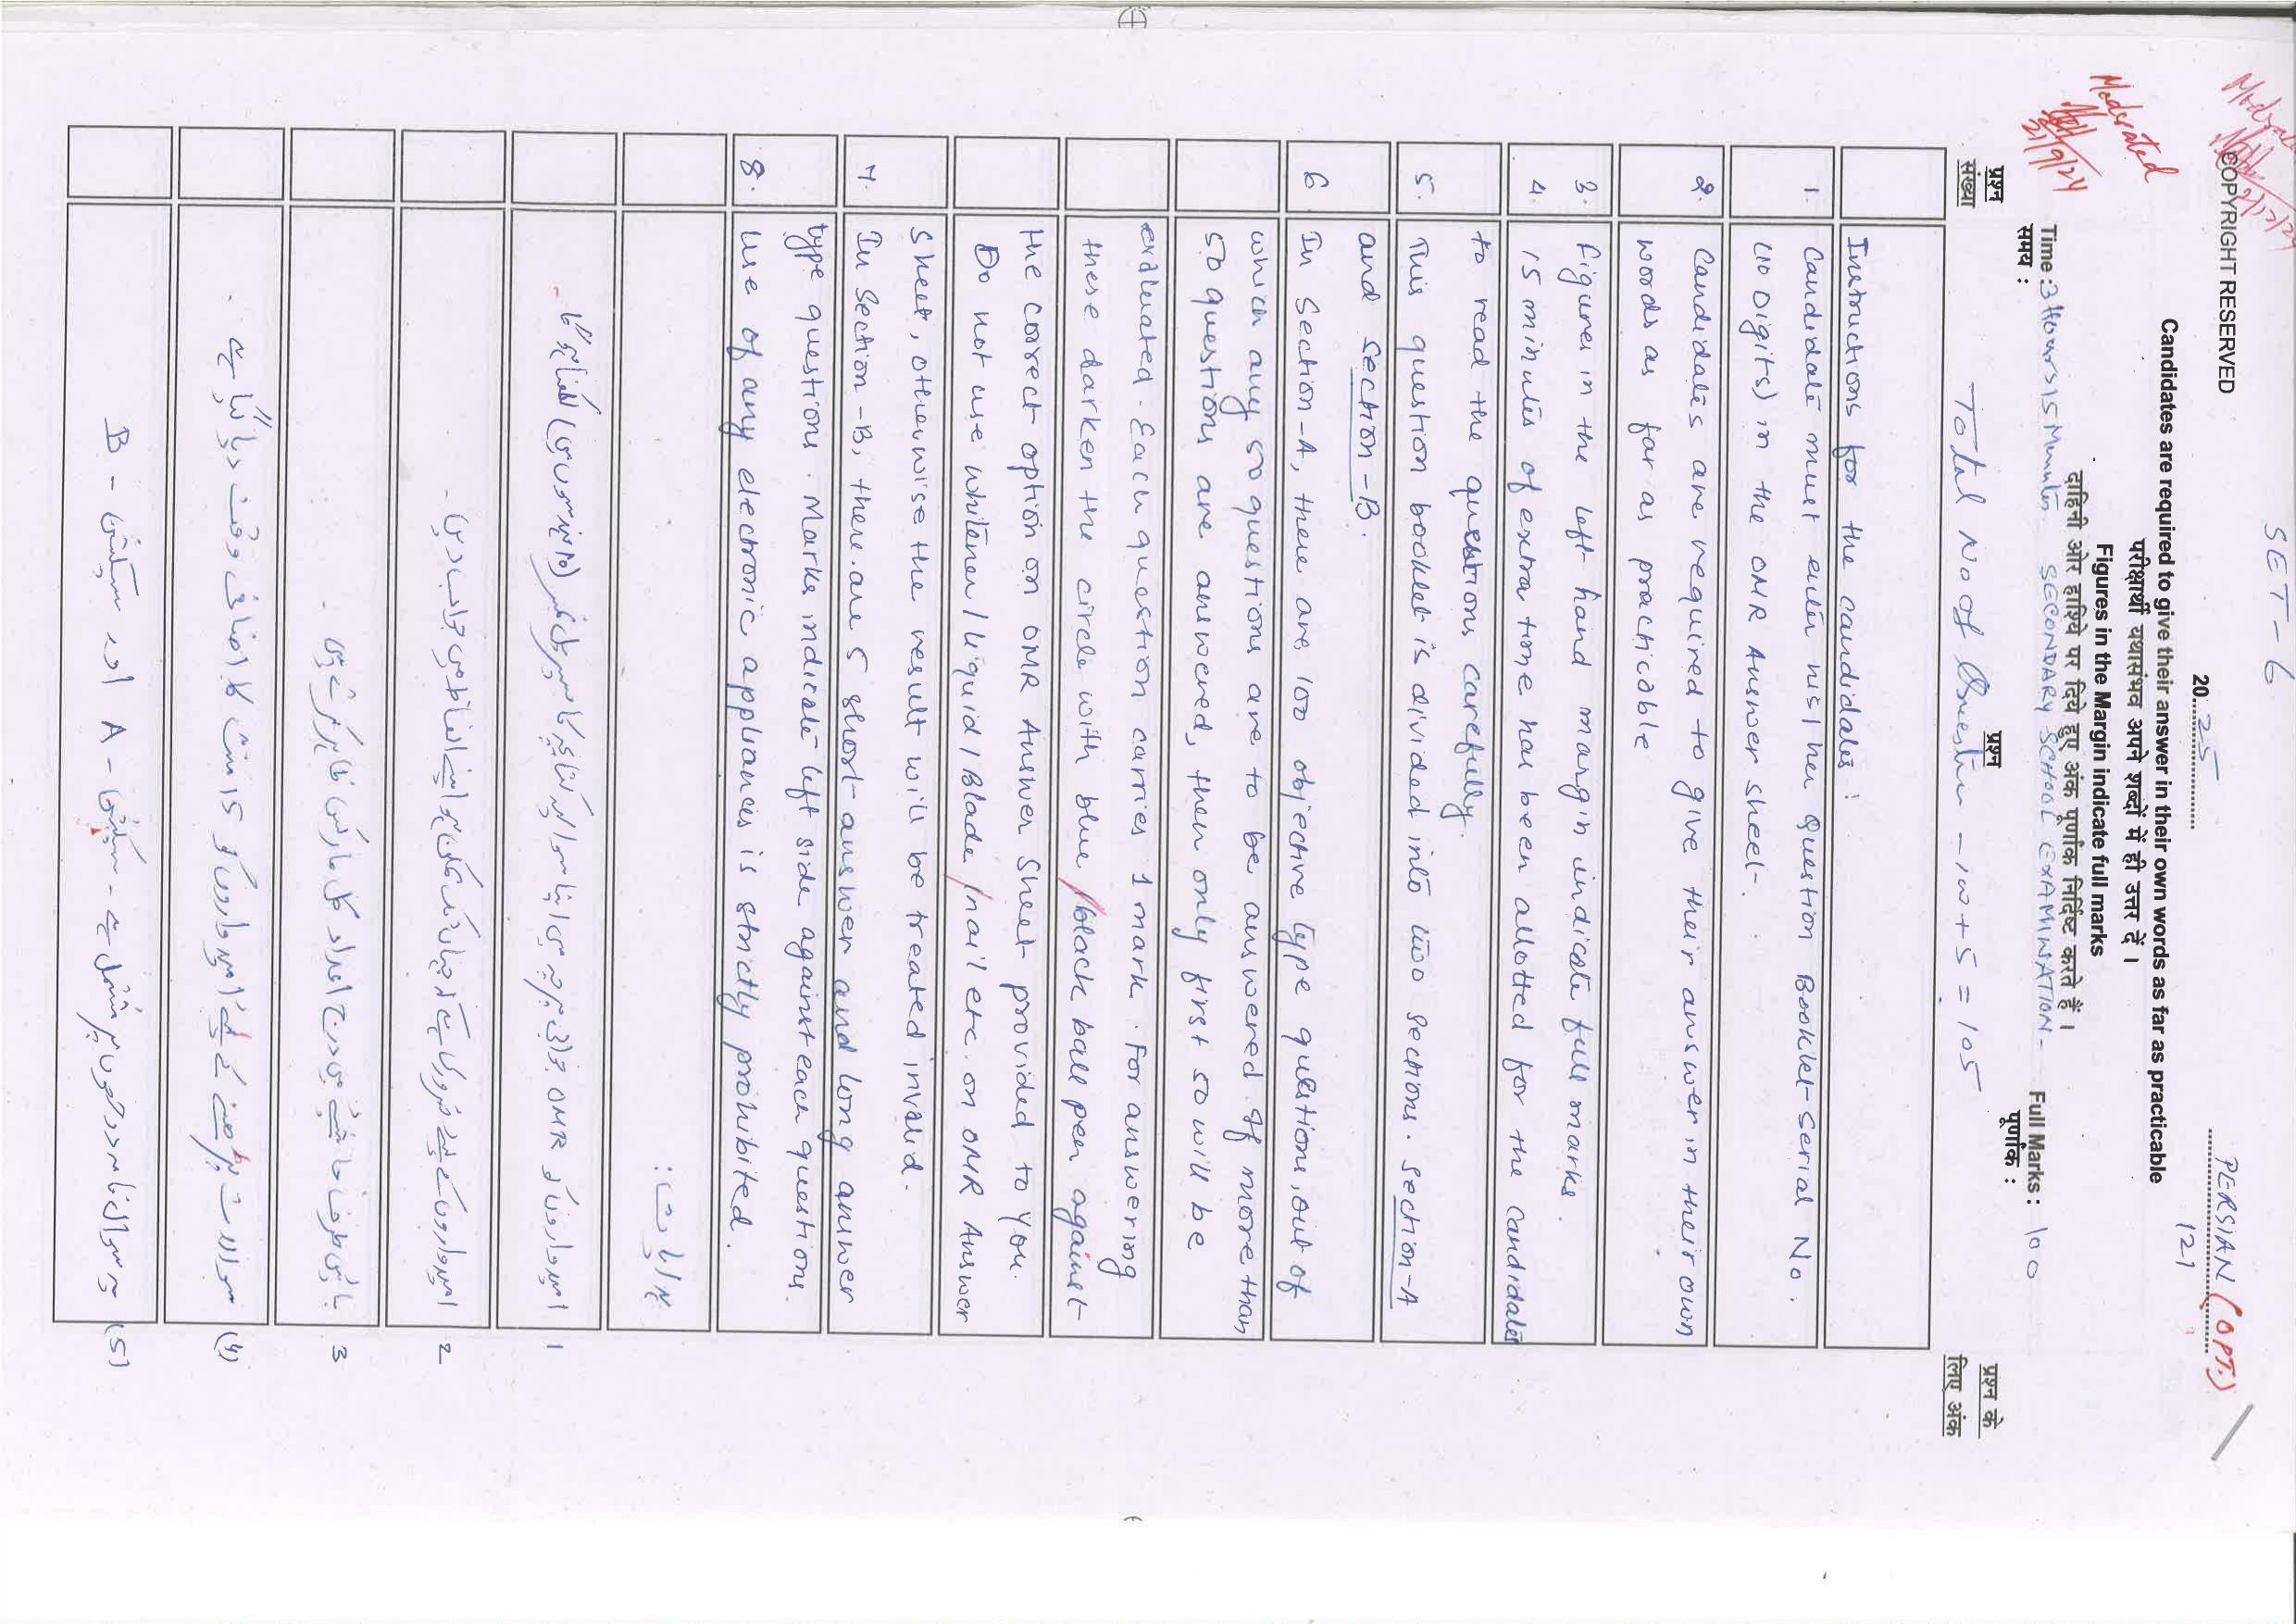 SET-6
COPYRIGHT RESERVED
20 25
PERSIAN (OPT.)
121
Candidates are required to give their answer in their own words as far as practicable
परीक्षार्थी यथासंभव अपने शब्दों में ही उत्तर दें ।
Figures in the Margin indicate full marks
दाहिनी ओर हाशिये पर दिये हुए अंक पूर्णांक निर्दिष्ट करते हैं ।
Moderated
21/9/24
Time : 3 Hours 15 Minutes. SECONDARY SCHOOL EXAMINATION - Full Marks : 100
समय : पूर्णांक :
प्रश्न संख्या प्रश्न प्रश्न के लिए अंक
Total No of Question - 100 + 5 = 105
Instructions for the candidates :
1. Candidate must enter his/her Question Booklet Serial No.
(10 Digits) in the OMR Answer sheet.
2. Candidates are required to give their answer in their own
words as far as practicable
3. Figures in the left hand margin indicate full marks.
4. 15 minutes of extra time has been allotted for the candidates
to read the questions carefully.
5. This question booklet is divided into two sections. Section-A
and Section-B.
6 In Section-A, there are 100 objective type questions, out of
which any 50 questions are to be answered. If more than
50 questions are answered, then only first 50 will be
evaluated. Each question carries 1 mark. For answering
these darken the circle with blue/black ball pen against
the correct option on OMR Answer Sheet provided to you.
Do not use whitener/liquid/Blade/nail etc. on OMR Answer
Sheet, otherwise the result will be treated invalid.
7. In Section-B, there are 5 short answer and long answer
type questions. Marks indicate left side against each questions.
8. Use of any electronic appliances is strictly prohibited.
ہدایات :
1 امیدواروں کو OMR جوابی پرچہ میں اپنا سوالیہ کتابچہ کا سیریل نمبر (10 ہندسوں میں) لکھنا ہوگا -
2 امیدواروں کے لیے ضروری ہے کہ جہاں تک ممکن ہو اپنے الفاظ میں جواب دیں -
3 بائیں طرف حاشیے میں درج اعداد کل مارکس ظاہر کرتے ہیں -
(4) سوالات پڑھنے کے لئے امیدواروں کو 15 منٹ کا اضافی وقت دیا گیا ہے .
(5) یہ سوالنامہ دو حصوں پر مشتمل ہے - سیکشن - A اور سیکشن - B